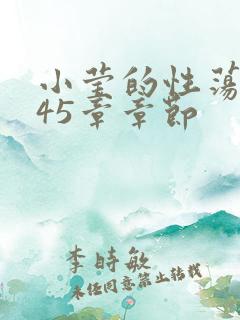 小莹的性荡
45章章节
李时敏
未经同意禁止转载